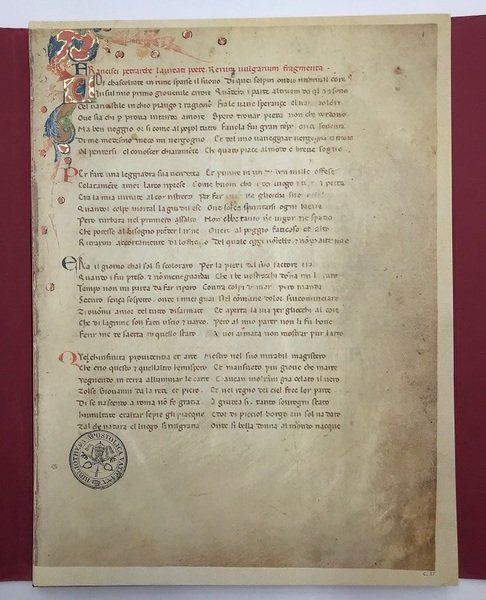 Francisci petrarche laureati poete Rerum vulgarium fragmenta
Voi chascoltate in rime sparse il suono Di quei sospiri ondio nudriva l core
In sul mio primo giovenile errore Quandera in parte altruom da quel chi sono
Del vario stile in chio piango et ragiono Fra le vane speranze el van dolore
Ove sia chi per prova intenda amore Spero trovar pieta non che perdono
Ma ben veggio or si come al popol tutto Favola fui gran tempo onde sovente
Di me medesmo meco mi vergogno Et del mio vaneggiar vergogna e l frutto
El pentersi el conoscer chiaramente Che quanto piace al mondo e breve sogno
Per fare una leggiadra sua vendetta Et punire in un di ben mille offese
Celatamente amor larco riprese Come huom cha nocer luogo et tempo aspetta
Era la mia virtute al cor ristretta Per far ivi et ne gliocchi sue difese
Quando l colpo mortal la giu discese Ove solea spuntarsi ogni saetta
Pero turbata nel primiero assalto Non ebbe tanto ne vigor ne spatio
Che potesse al bisogno prender larme Overo al poggio faticoso et alto
Ritrarmi accortamente da lo stratio Del quale oggi vorrebbe et non po aitarme
Era il giorno chal sol si scoloraro Per la pieta del suo factore i rai
Quando i fui preso et non me ne guardai Che i be vostrocchi donna mi legaro
Tempo non mi parea da far riparo Contra colpi damor pero mandai
Secur senza sospetto onde i miei guai Nel commune dolor sincominciaro
Trovommi amor del tutto disarmato Et aperta la via per gliocchi al core
Che di lagrime son fatti uscio et varco Pero al mio parer non li fu honore
Ferir me de saetta in quello stato A voi armata non mostrar pur larco
Quel chinfinita providentia et arte Mostro nel suo mirabil magistero
Che crio questo et quellaltro hemispero Et mansueto piu giove che marte
Vegnendo in terra alluminar le carte Chavean moltanni gia celato il vero
Tolse Giovanni da la rete et piero Et nel regno del ciel fece lor parte
Di se nascendo a roma non fe gratia A giudea si tanto sovrogni stato
Humiltate exaltar sempre gli piacque Ed or di picciol borgo un sol na dato
Tal che natura el luogo si ringratia Onde si bella donna al mondo nacque
BIBLIOTHECA APOSTOLICA VATICANA